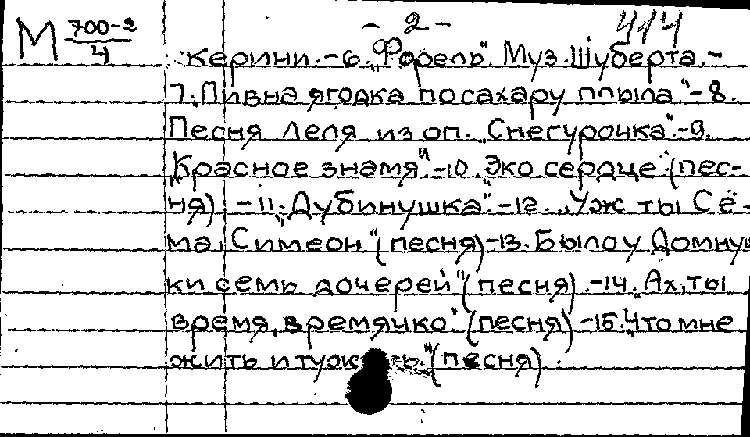 - 2 - 414
М 700-2/4
керини. - 6. „Форель". Муз. Шуберта. -
7. „Пивна ягодка по сахару плыла" - 8.
Песня Леля из оп. „Снегурочка". - 9.
„Красное знамя". - 10. „Эко сердце" (пес-
ня) - 11. „Дубинушка". - 12. „Уж ты Сё-
ма, Симеон" (песня) - 13. Было у Домнуш
ки семь дочерей" (песня). - 14. „Ах, ты
время, времячко". (песня) - 15. „Что мне
жить и тужить." (песня).